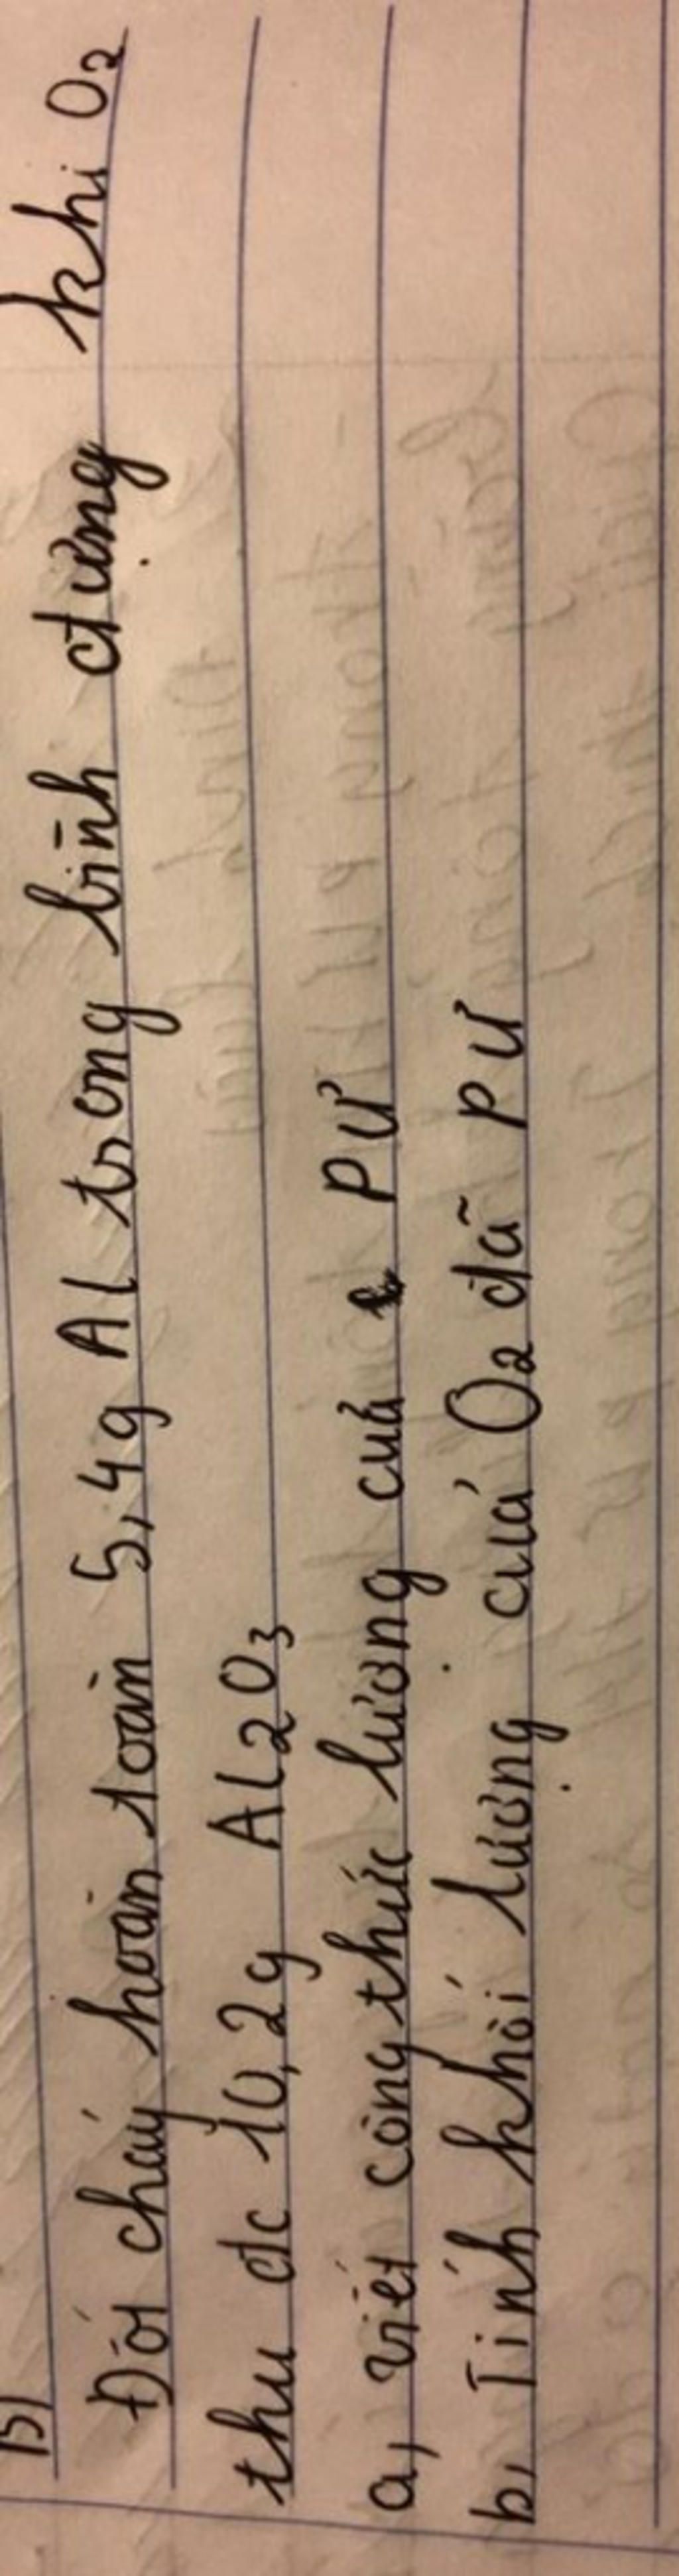 B)
Đốt cháy hoàn toàn 5,4g Al trong bình đựng khí O2
thu đc 10,2g Al2O3
a, viết công thức lượng của PƯ
b, Tính khối lượng của O2 đã PƯ